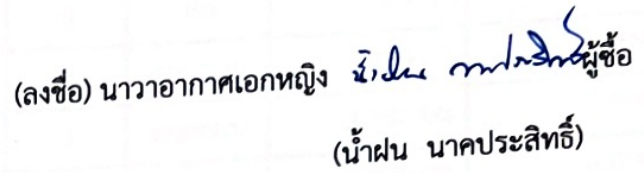 (ลงชื่อ) นาวาอากาศเอกหญิง น้ำฝน นาคประสิทธิ์ ผู้ซื้อ
(น้ำฝน นาคประสิทธิ์)